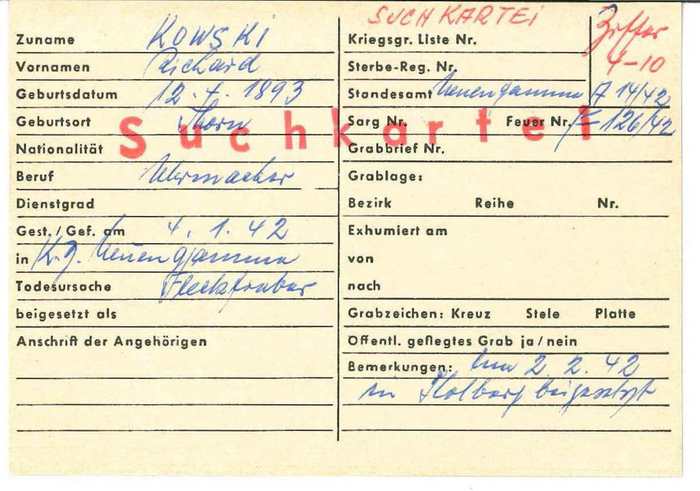 SUCHKARTEI
Ziffer
4-10
Suchkartei
Zuname KOWSKI
Vornamen Richard
Geburtsdatum 12. 1893
Geburtsort Thorn
Nationalität
Beruf Uhrmacher
Dienstgrad
Gest./Gef. am 4. 1. 42
in K.g. Neuengamme
Todesursache Fleckfieber
beigesetzt als
Anschrift der Angehörigen
Kriegsgr. Liste Nr.
Sterbe-Reg. Nr.
Standesamt Neuengamme A 14/42
Sarg Nr. Feuer Nr. 126/42
Grabbrief Nr.
Grablage:
Bezirk Reihe Nr.
Exhumiert am
von
nach
Grabzeichen: Kreuz Stele Platte
Öffentl. gepflegtes Grab ja/nein
Bemerkungen: 2. 2. 42
in Kolberg beigesetzt